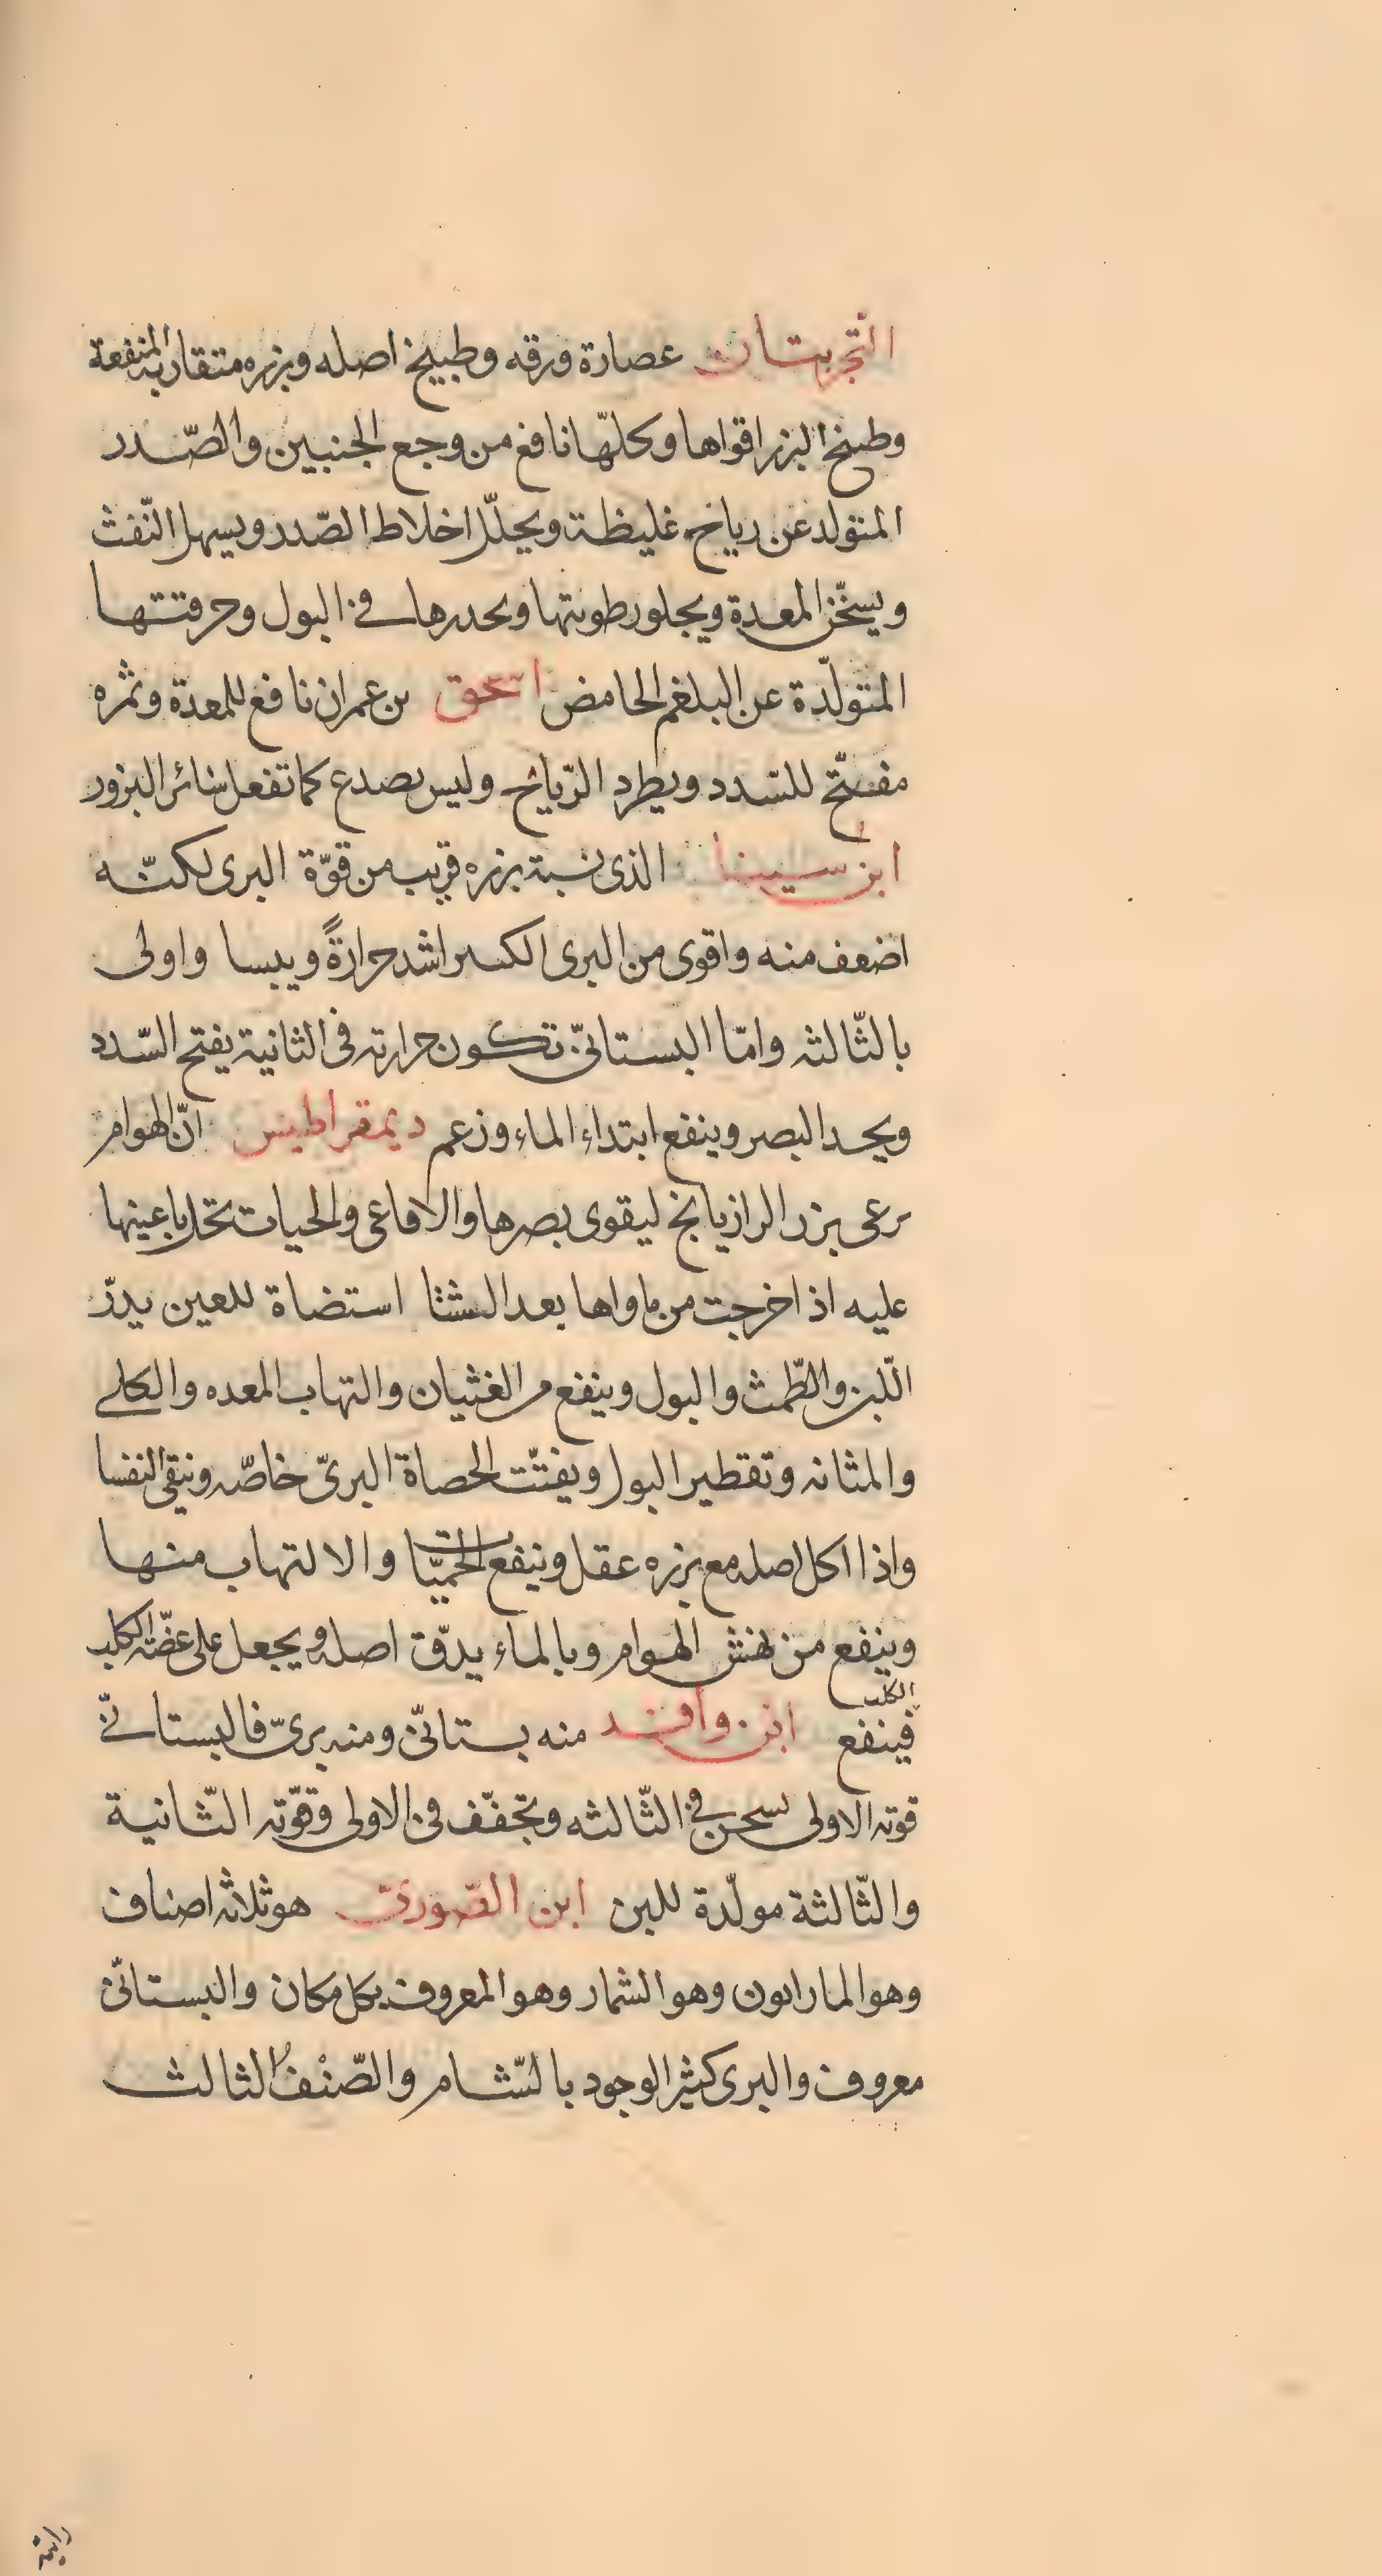 التجربتان عصارة ورقه وطبيخ اصله وبزره متقاربة المنفعة
وطبيخ البزر اقواها وكلّها نافع من وجع الجنبين والصّدر
المتولد عن رياح غليظة ويحلّل اخلاط الصّدر ويسهل النّفث
ويسخّن المعدة ويجلو رطوبتها ويحدرها في البول وحرقتها
المتولّدة عن البلغم الحامض اسحق بن عمران نافع للمعدة وثمره
مفتّح للسّدد ويطرد الرّياح وليس بصدع كما تفعل سائر البزور
ابن سينا الذى نسبة بزره قريب من قوّة البرى لكنّه
اضعف منه واقوى من البرى الكبير اشد حرارةً ويبسا واولى
بالثّالثه وامّا البستانىّ تكون حرارته فى الثانية يفتح السّدد
ويحد البصر وينفع ابتداء الماء وزعم ديمقراطيس انّ الهوام
برعى بزر الرازيانج ليقوى بصرها والافاعى والحيات تحك باعينها
عليه اذ اخرجت من ماواها بعد الشتا استضاة للعين يدرّ
اللّبن والطّمث والبول وينفع من الغثيان والتهاب المعده والكلى
والمثانه وتقطير البول ويفتّت الحصاة البرىّ خاصّه وينقى النفسا
واذا اكل اصله مع بزره عقل وينفع الحميّات والالتهاب منها
وينفع من نهش الهوام وبالماء يدقّ اصله ويجعل على عضّة الكلب
الكلب
فينفع ابن وافد منه بستانىّ ومنه برىّ فالبستانىّ
قوته الاولى تسخن في الثّالثه وتجفّف فى الاولى وقوّته الثّانية
والثّالثة مولّدة للبن ابن الصّورىّ هو ثلاثه اصناف
وهو المارابون وهو الشمار وهو المعروف بكل مكان والبستانىّ
معروف والبرى كثير الوجود بالشّام والصّنْفُ الثالث